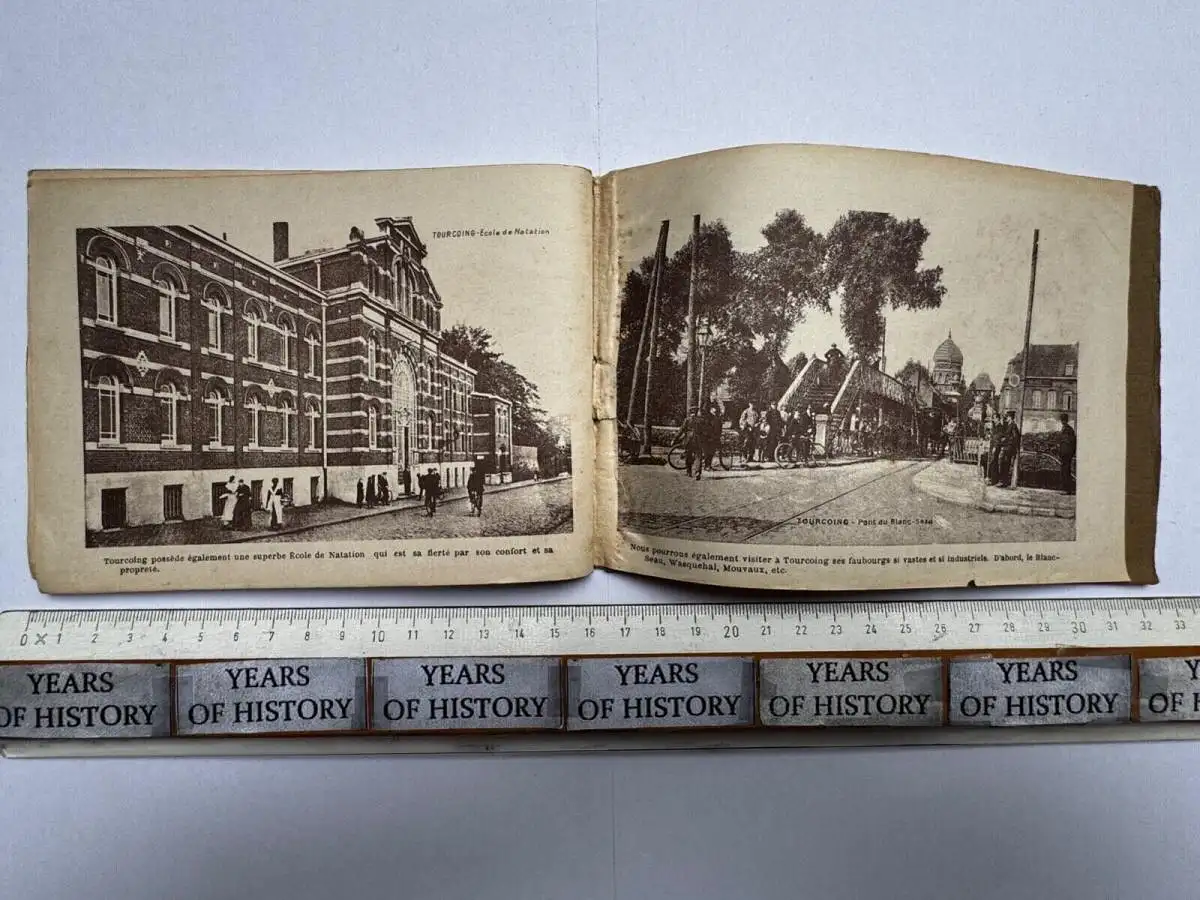 TOURCOING - École de Natation
Tourcoing possède également une superbe École de Natation qui est sa fierté par son confort et sa
propreté.
TOURCOING - Pont du Blanc-Seau
Nous pourrons également visiter à Tourcoing ses faubourgs si vastes et si industriels. D'abord, le Blanc-
Seau, Wasquehal, Mouvaux, etc.
0 × 1 2 3 4 5 6 7 8 9 10 11 12 13 14 15 16 17 18 19 20 21 22 23 24 25 26 27 28 29 30 31 32 33
YEARS
OF HISTORY
YEARS
OF HISTORY
YEARS
OF HISTORY
YEARS
OF HISTORY
YEARS
OF HISTORY
YEARS
OF HISTORY
YEARS
OF H